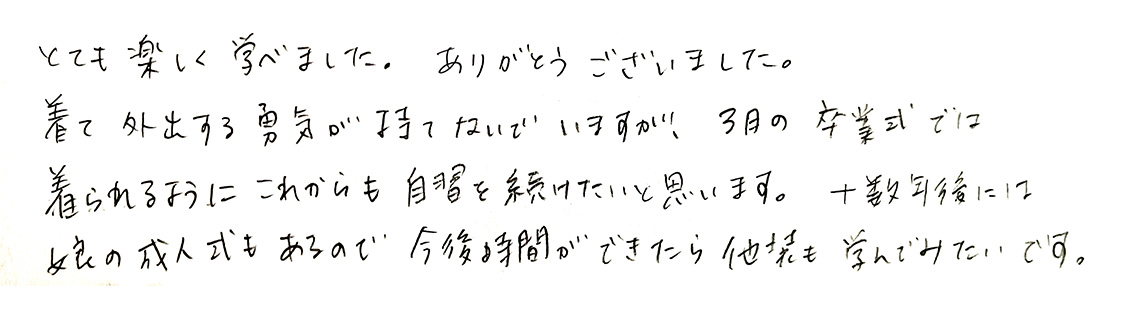 とても楽しく学べました。ありがとうございました。
着て外出する勇気が持てないでいますが、3月の卒業式では
着られるようにこれからも自習を続けたいと思います。十数年後には
娘の成人式もあるので今後時間ができたら他装も学んでみたいです。